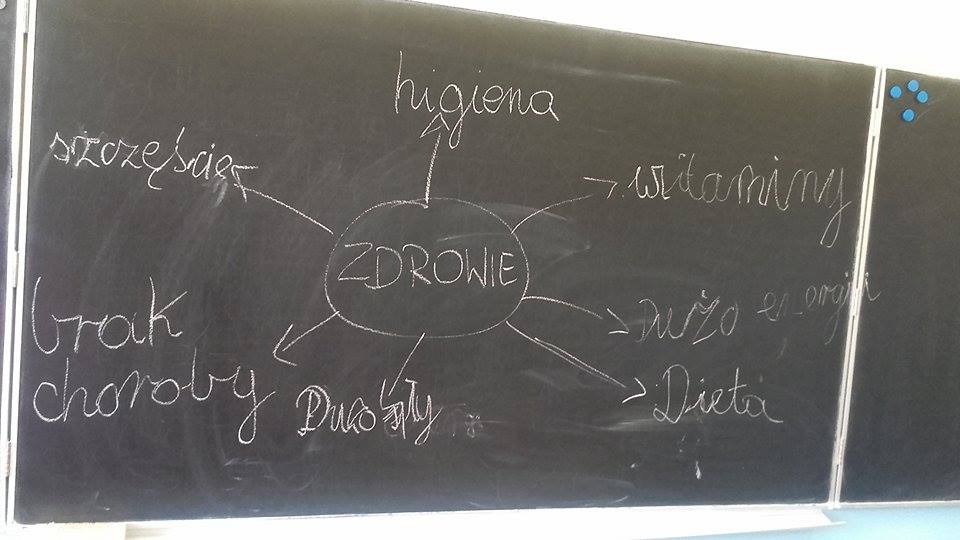 higiena
szczęście
witaminy
ZDROWIE
Dużo energii
brak
choroby
Dieta